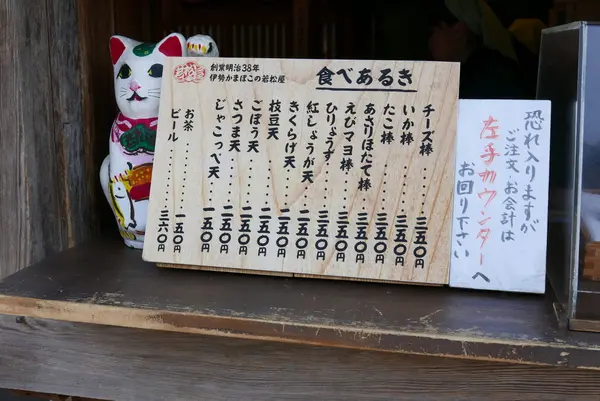 創業明治38年
伊勢かまぼこの若松屋
食べあるき
チーズ棒‥‥‥三五〇円
いか棒‥‥‥三五〇円
たこ棒‥‥‥三五〇円
あさりほたて棒‥‥‥三五〇円
えびマヨ棒‥‥‥三五〇円
ひりょうず‥‥‥三五〇円
紅しょうが天‥‥‥二五〇円
きくらげ天‥‥‥二五〇円
枝豆天‥‥‥二五〇円
ごぼう天‥‥‥二五〇円
さつま天‥‥‥二五〇円
じゃこっぺ天‥‥‥二五〇円
お茶‥‥‥一五〇円
ビール‥‥‥三六〇円
恐れ入りますが
ご注文・お会計は
左手カウンターへ
お回り下さい